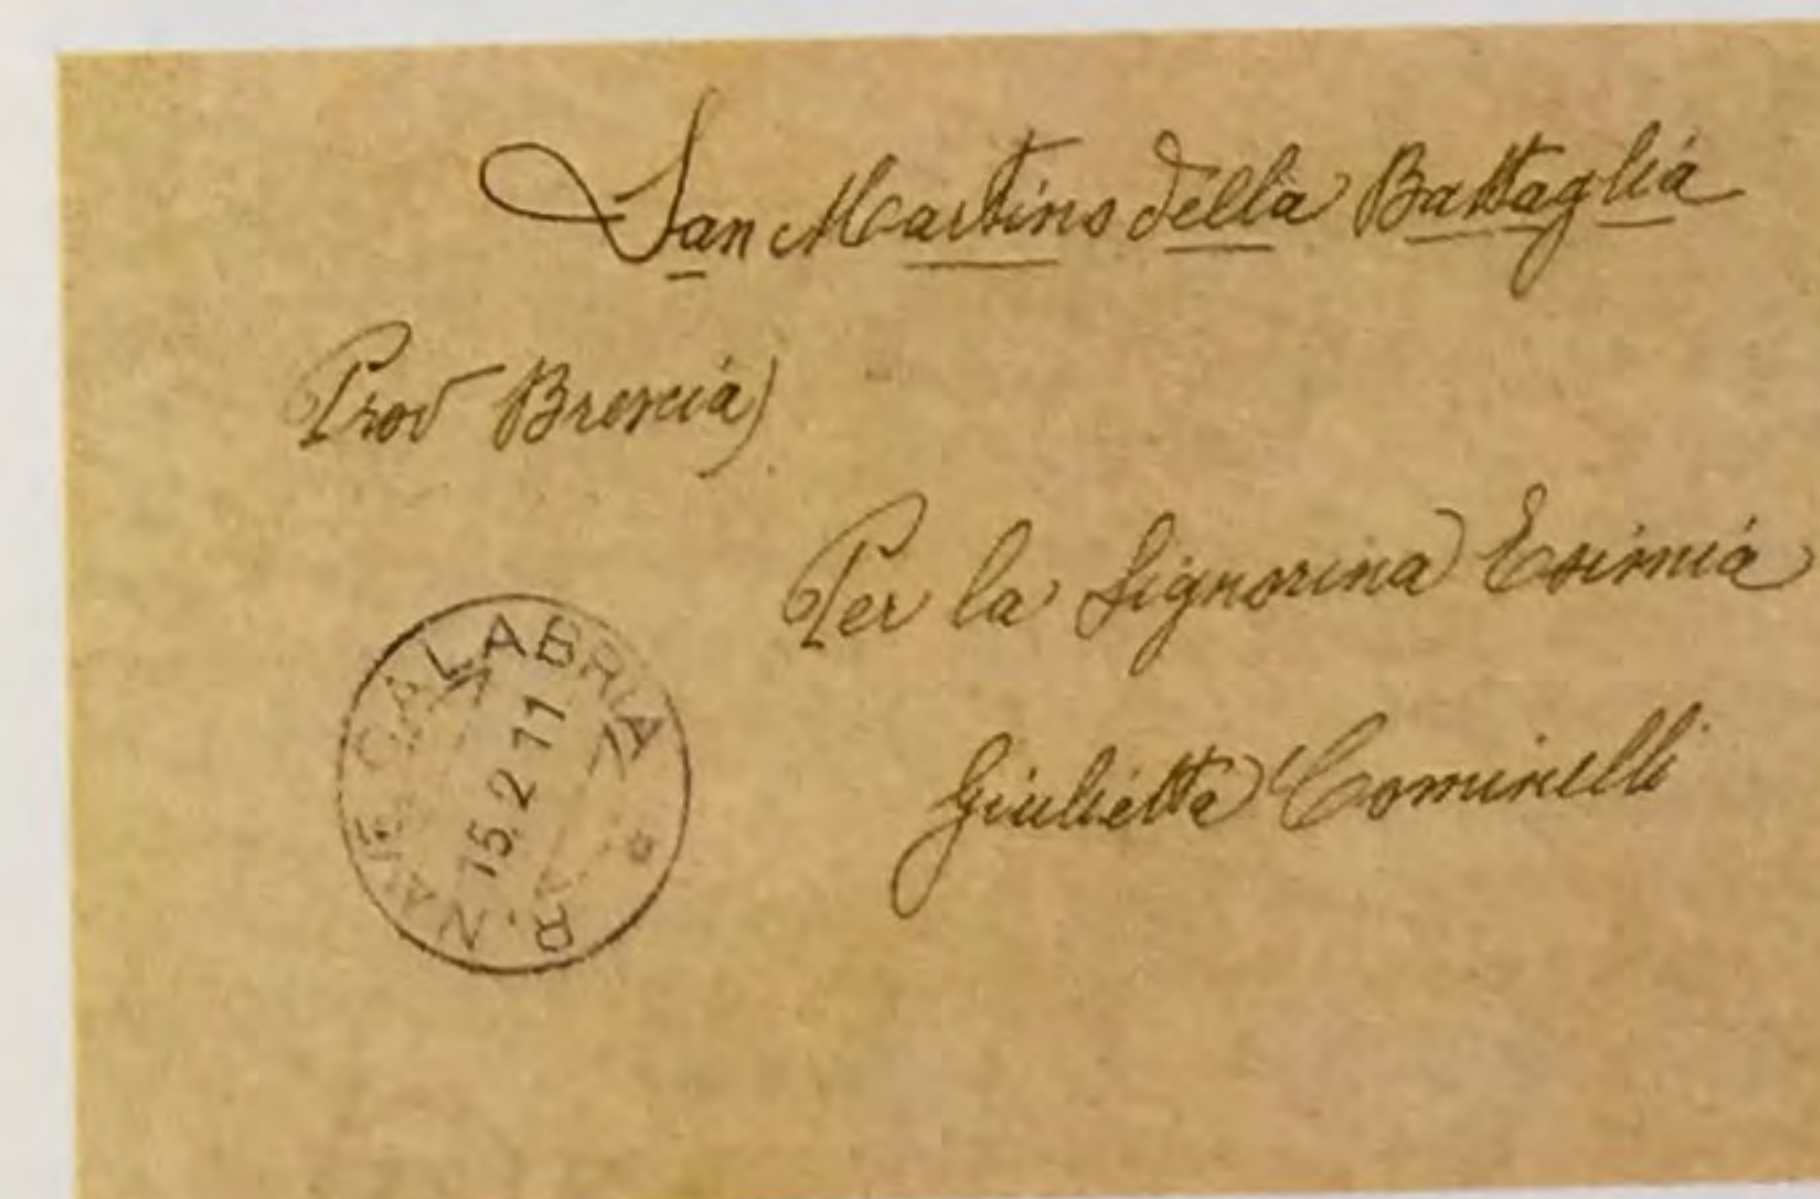 San Martino della Battaglia
Prov Brescia)
Per la Signorina Esimia
Giulietta Cominelli
R. NAVE CALABRIA
15.2 11